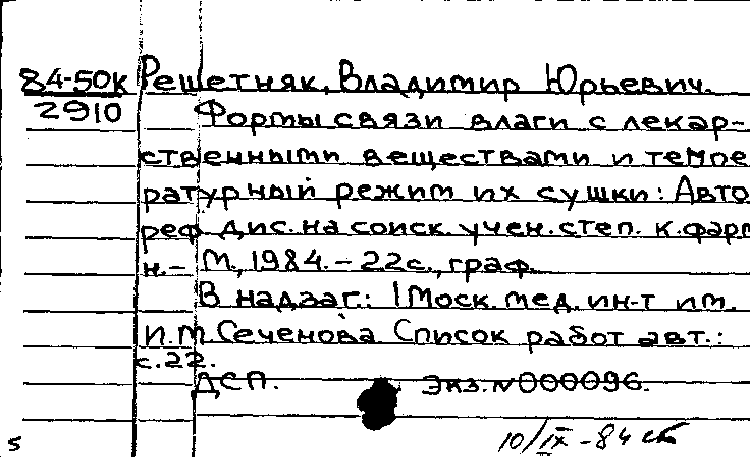 84-50к Решетняк, Владимир Юрьевич.
2910 Формы связи влаги с лекар-
ственными веществами и темпе
ратурный режим их сушки: Авто
реф. дис. на соиск. учен. степ. к. фарм
н. - М., 1984. - 22с., граф.
В надзаг.: 1 Моск. мед. ин-т им.
И.М. Сеченова Список работ авт.:
с.22.
ДСП. Экз. №000096.
10/IX-84
5